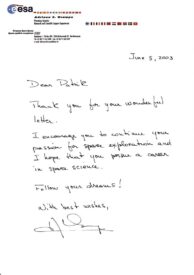 esa
June 5, 2003
Dear Patrick
Thank you for your wonderful
letter.
I encourage you to continue your
passion for space exploration and
I hope that you pursue a career
in space science.
Follow your dreams!
With best wishes,